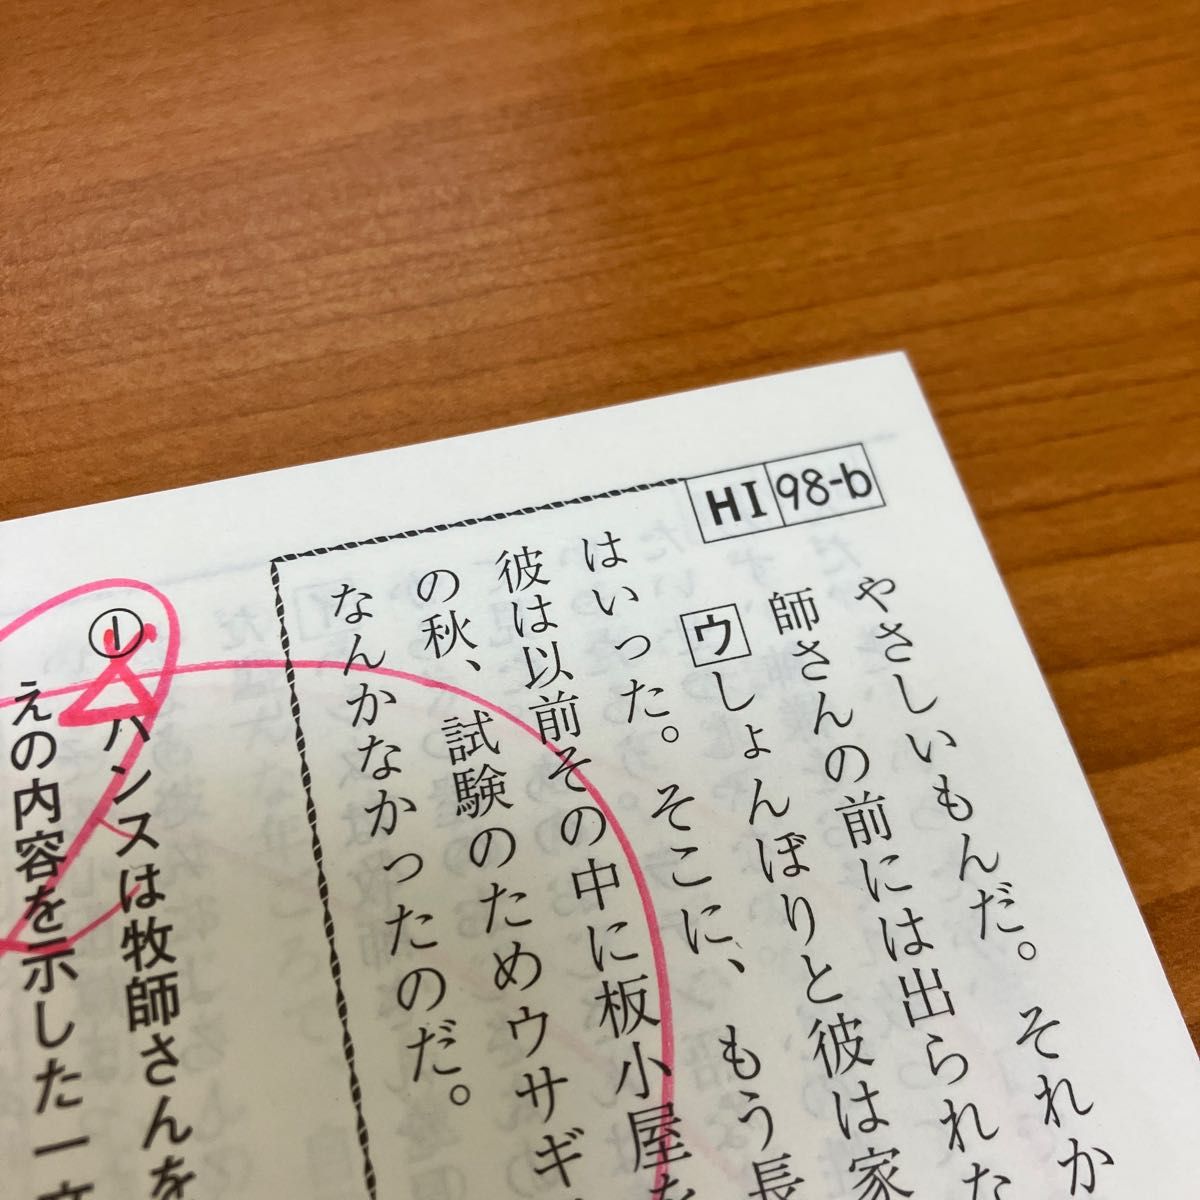 HI 98-b
やさしいもんだ。それか
師さんの前には出られた
ウしょんぼりと彼は家
はいった。そこに、もう長
彼は以前その中に板小屋を
の秋、試験のためウサギ
なんかなかったのだ。
① ハンスは牧師さんを
えの内容を示した一文